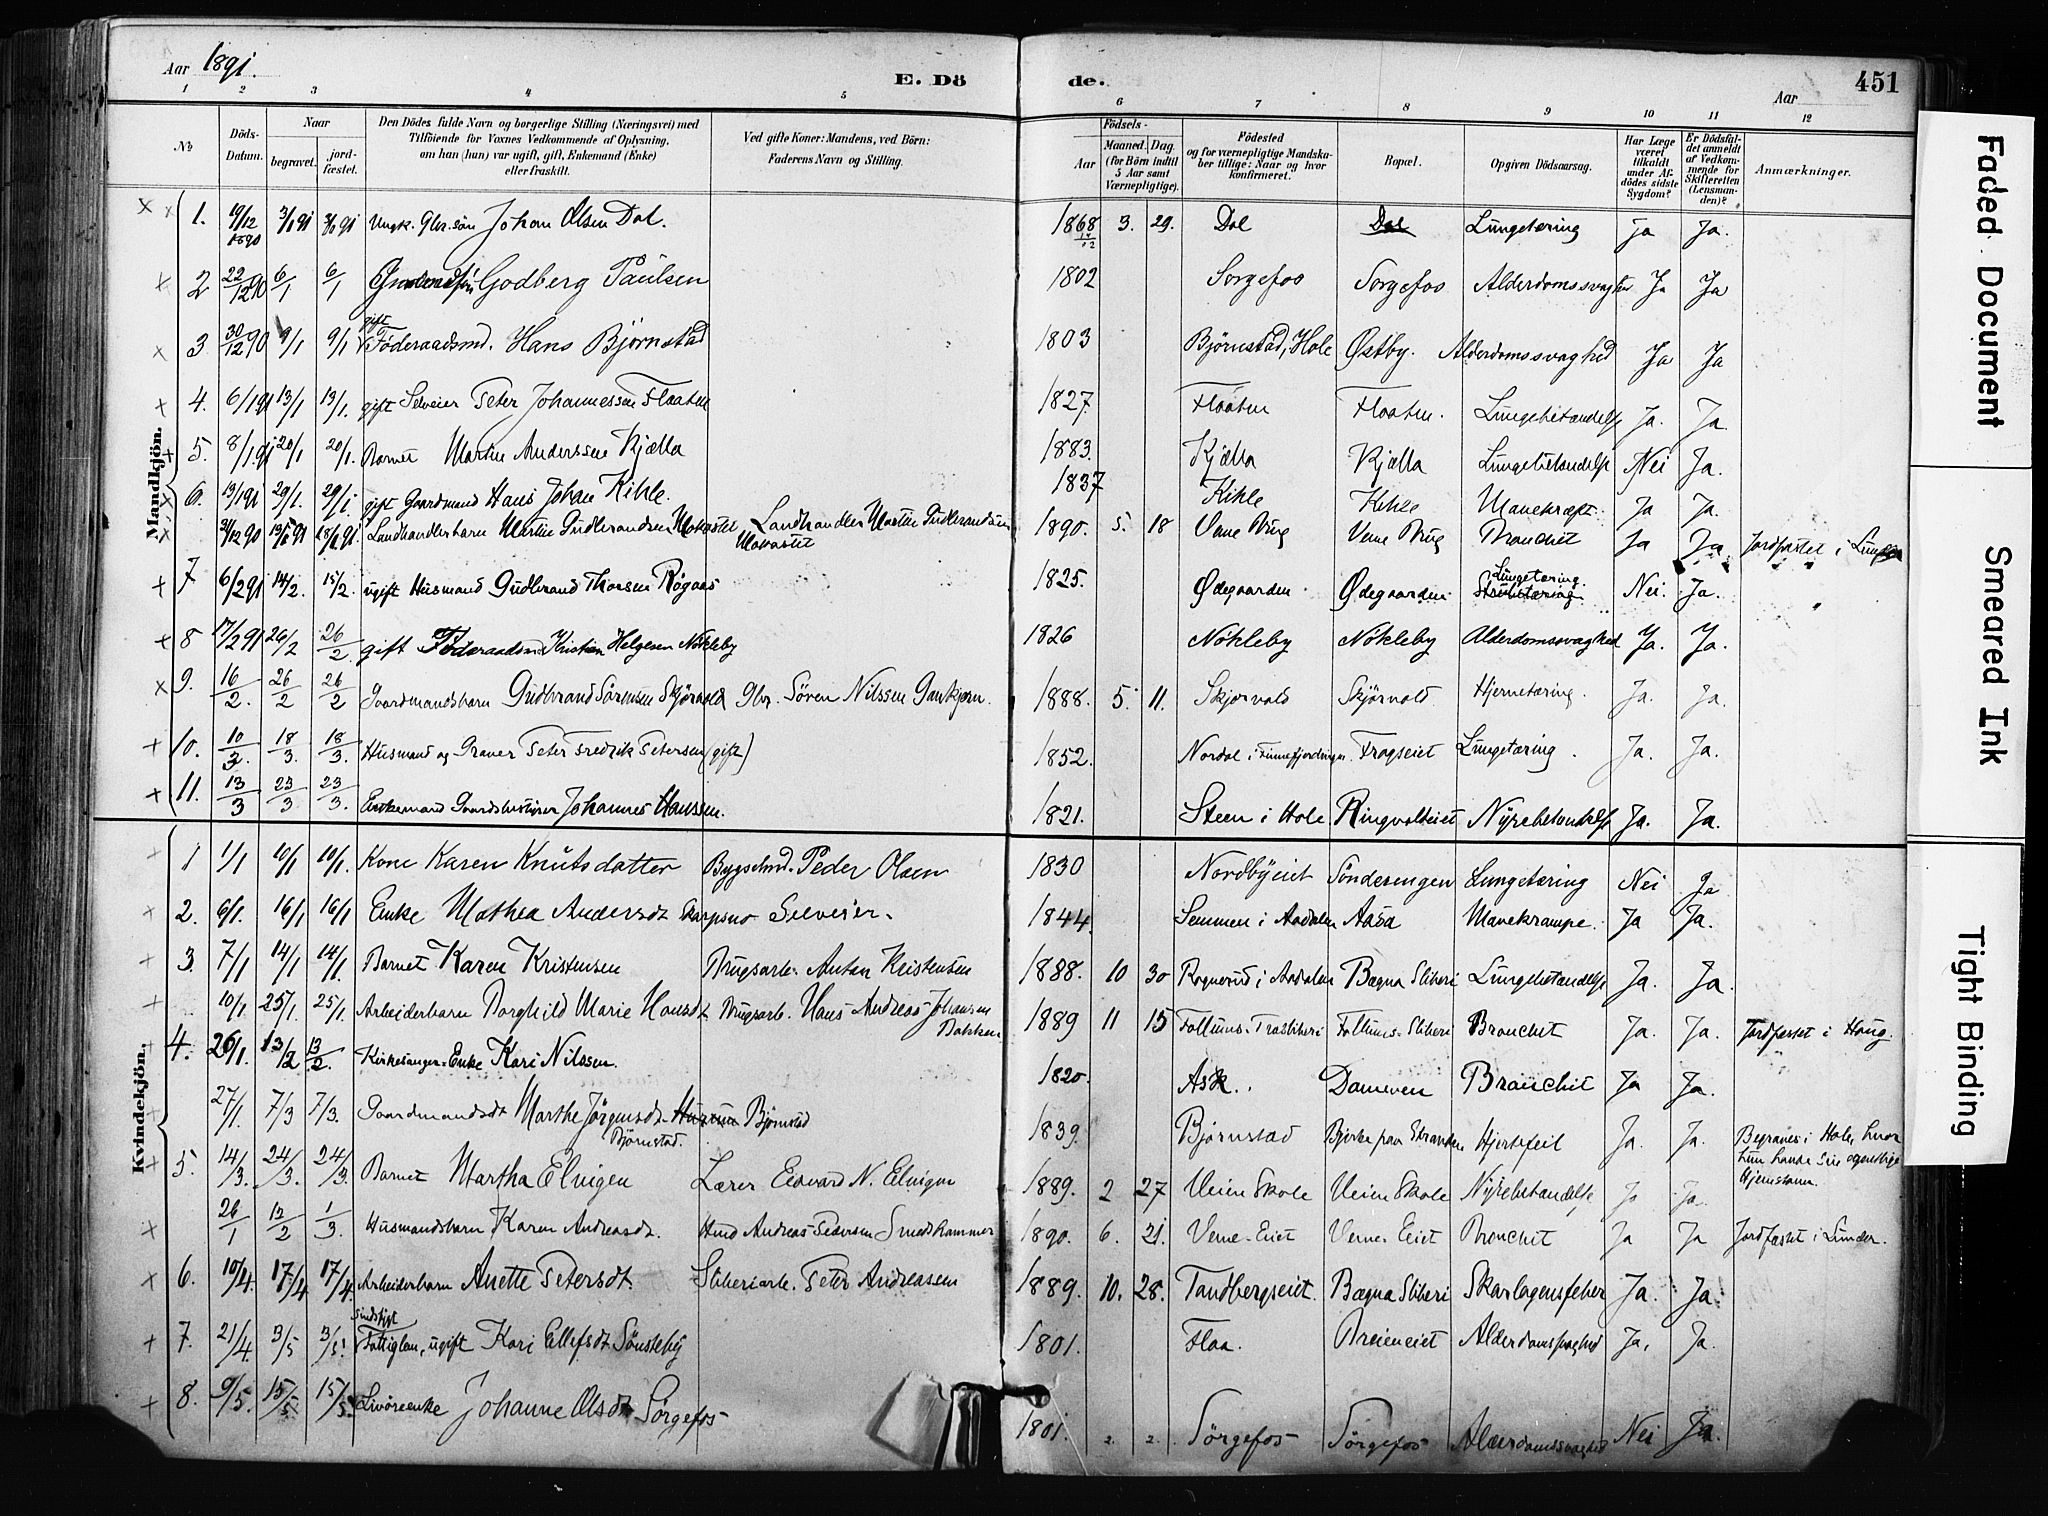 Aar 1891. E. Dö de. Aar 451
1 2 3 4 5 6 7 8 9 10 11 12
No Döds-Datum. Naar begravet. jord-fæstet. Den Dödes fulde Navn og borgerlige Stilling (Næringsvei) med Tilföiende for Voxnes Vedkommende af Oplysning, om han (hun) var ugift, gift, Enkemand (Enke) eller fraskilt. Ved gifte Koner: Mandens, ved Börn: Faderens Navn og Stilling. Födsels- Aar Maaned. Dag. (for Börn indtil 5 Aar samt Værnepligtige). Födested og for værnepligtige Mandska-ber tillige: Naar og hvor konfirmeret. Bopæl. Opgiven Dödsaarsag. Har Læge været tilkaldt under Af-dödes sidste Sygdom? Er Dödsfal-det anmeldt af Vedkom-mende for Skifteretten (Lensman-den)? Anmærkninger.
Mandkjön.
1. 19/12 1890 3/1 91 3/1 91 Ungk. Gbr.sön Johan Olsen Dal. 1868 3. 29. Dal Dal Lungetæring Ja Ja.
2 22/12 90 6/1 6/1 Godberg Paulsen 1802 Sorgefos Sorgefos Alderdomssvaghed Ja Ja
3 30/12 90 9/1 9/1 gift Föderaadsmd. Hans Björnstad 1803 Björnstad, Hole Østby. Alderdomssvaghed Ja Ja
4. 6/1 91 13/1 13/1. gift Selveier Peter Johannessen Flaaten 1827. Flaaten Flaaten. Lungebetændelse Ja. Ja
5. 8/1 91 20/1 20/1. Barnet Martin Anderssen Kjælla 1883. Kjælla Kjælla Lungebetændelse Nei Ja.
6. 13/1 91 29/1. 29/1. gift Gaardmand Hans Johan Kihle. 1837 Kihle Kihle Mavekræft Ja Ja.
31/12 90 Landhandlerbarn Martin Gudbrandsen Mokastet Landhandler Martin Gudbrandsen Mokastet 1890. 5. 18 Veme Brug Veme Brug Bronchit Ja Ja Jordfæstet i Lunder
7 6/2 91 14/2. 15/2. ugift Husmand Gudbrand Thorsen Rögaas 1825. Ødegaarden Ødegaarden Lungetæring. Nei. Ja.
8 17/2 91 26/2 26/2 gift Föderaadsm. Kristian Helgesen Nökleby 1826 Nökleby Nökleby Alderdomssvaghed Ja. Ja.
9. 16/2. 26/2 26/2 Gaardmandsbarn Gudbrand Sörensen Skjörvold Gbr. Sören Nilssen 1888. 5. 11. Skjorvold Skjörvold Hjernetæring. Ja. Ja.
10. 10/3. 18/3. 18/3. Husmand og Graver Peter Fredrik Petersen (gift) 1852. Nordal i Frogseiet Lungetæring. Ja. Ja.
11. 13/3 23/3 23/3. Enkemand Johannes Hanssen. 1821. Steen i Hole Ringvoldeiet Nyrebetændelse Ja. Ja.
Kvindekjön.
1 1/1 10/1 10/1. Kone Karen Knutsdatter Bygselmd. Peder Olsen 1830 Nordbyeiet Sönderengen Lungetæring Nei Ja
2. 6/1. 16/1 16/1 Enke Mathea Andersdt Skarpsno Selveier. 1844. Semmen i Aadalen Aasa Mavekrampe. Ja Ja.
3. 7/1 14/1 14/1. Barnet Karen Kristensen Brugsarb. Anton Kristensen 1888. 10 30 Rognerud i Aadalen Bægna Sliberi Lungebetændelse Ja. Ja.
10/1. 25/1. 25/1. Arbeiderbarn Borghild Marie Hansdt. Brugsarb. Hans Andreas Johansen Bakken 1889 11 15 Follums-Træsliberi Follums-Sliberi Bronchit Ja. Ja. Jordfæstet i Haug.
4. 26/1. 13/2 13/2. Kirkesanger-Enke Kari Nilssen. 1820. Ask. Dameven Bronchit Ja Ja.
27/1. 7/3 7/3. Gaardmandsdt Marthe Jörgensdt Björnstad Björnstad. 1839. Björnstad Bjerke paa Hjertefeil Ja. Ja. Begraves i Hole, hvor hun havde sin egentlige Hjemstavn.
5. 14/3. 24/3. 24/3. Barnet Martha Elvigen Lærer Edvard N. Elvigen 1889. 2 27 Veien Skole Veien Skole Nyrebetændelse Ja Ja.
26/1 13/2 1/3. Husmandsbarn Karen Andreasdt. Hmd Andreas Pedersen Smedshammer 1890. 6. 21. Veme-Eiet Veme-Eiet Bronchit Ja Ja Jordfæstet i Lunder.
6. 10/4. 17/4 17/4. Arbeiderbarn Anette Petersdt Sliberiarb. Peter Andreasen 1889. 10. 28. Tandbergseiet. Bægna Sliberi Skarlagensfeber Ja. Ja
7. 21/4. 3/5 3/5. sindssygt Fattiglem, ugift Kari Ellefsdt Sönsteby 1801. Flaa. Breieneiet Alderdomssvaghed Ja. Ja.
8. 9/5. 15/5 15/5. Livöreenke Johanne Olsdt Sörgefos 1801. 2. 2. Sörgefos Sörgefos Alderdomssvaghed Nei Ja.
Faded Document
Smeared Ink
Tight Binding